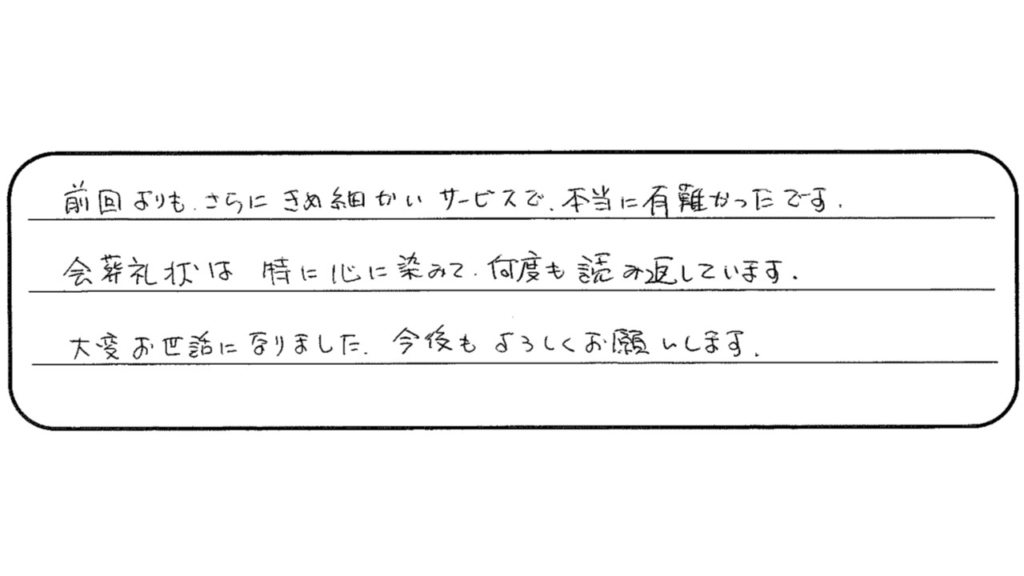 前回よりも、さらにきめ細かいサービスで、本当に有難かったです。
会葬礼状は 特に心に染みて、何度も読み返しています。
大変お世話になりました。今後もよろしくお願いします。